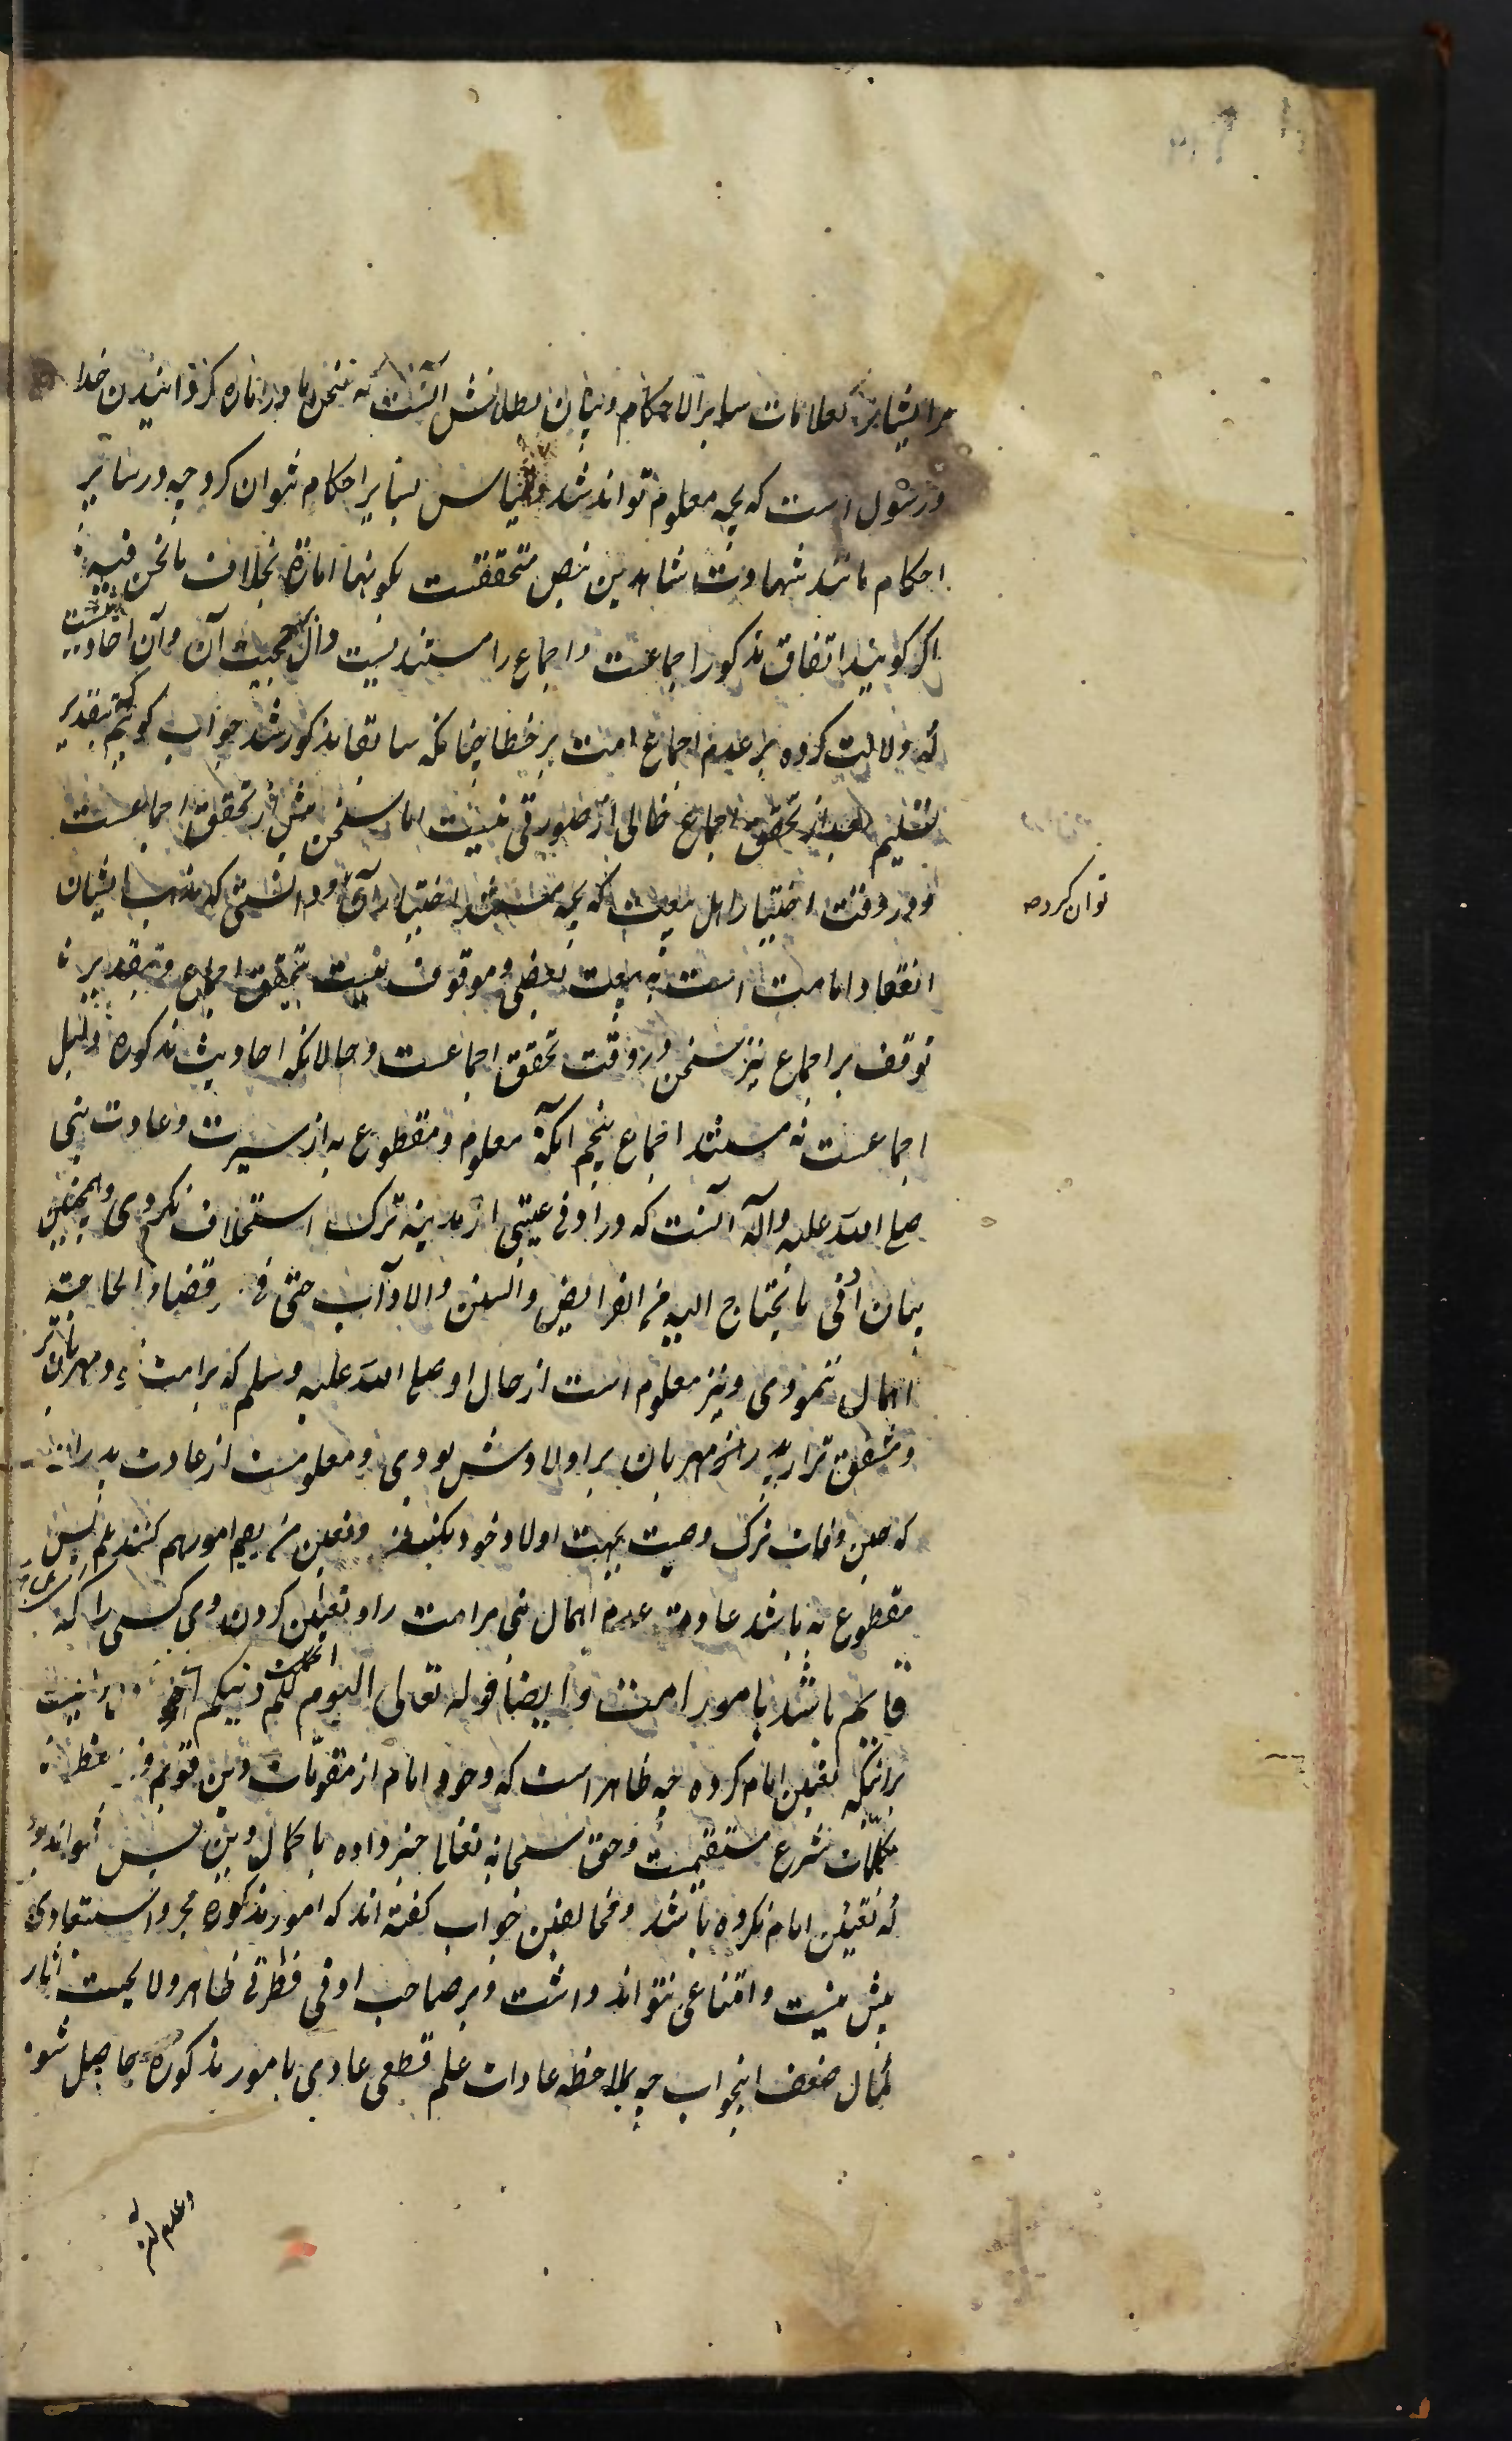 مرایشانرا کعلامات سایر الاحکام و بیان بطلانش آنست که سخن ما در اماره گردانیدن خدا
و رسول است که بچه معلوم تواند شد و قیاس بسایر احکام نتوان کرد چه در سایر
احکام مانند شهادت شاهدین بنص متحققست کونها امارة بخلاف ما نحن فیه
اگر گویند اتفاق مذکور اجماعست و اجماع را مستندیست دال بر حجیت آن و آن احادیثیست
که دلالت کرده بر عدم اجماع امت بر خطا چنانکه سابقا مذکور شد جواب گوئیم بتقدیر
تسلیم بعد از تحقق اجماع خالی از صورتی نیست اما سخن پیش از تحقق اجماعست
و در وقت اختیار اهل بیعت که بچه مستند اختیار آن توان کرد و دانستی که مذهب ایشان
انعقاد امامت است به بیعت بعضی و موقوف نیست بتحقق اجماع و بتقدیر
توقف بر اجماع نیز سخن در وقت تحقق اجماعست و حالانکه احادیث مذکوره دلیل
اجماعست نه مستند اجماع پنجم آنکه معلوم و مقطوع به از سیرت و عادت نبی
صلی الله علیه وآله آنست که در ادنی غیبتی از مدینه ترک استخلاف نکردی و همچنین
بیان ادنی ما یحتاج الیه من الفرایض و السنن و الاداب حتی فی قضاء الحاجة
اهمال ننمودی و نیز معلوم است از حال او صلی الله علیه وسلم که بر امت مهربان تر
و مشفق تر از پدران مهربان بر اولادش بودی و معلومست از عادت پدران
که حین وفات ترک وصیت بجهت اولاد خود نکنند و تعیین من یقیم امورهم کنند پس
مقطوع به باشد عادة عدم اهمال نبی مر امت را و تعیین کردن وی کسی را که
قایم باشد بامور امت و ایضا قوله تعالی الیوم اکملت لکم دینکم
برانیکه تعیین امام کرده چه ظاهر است که وجود امام از مقومات دین قویم و
مکملات شرع مستقیمست و حق سبحانه تعالی خبر داده باکمال دین پس نتواند بود
که تعیین امام نکرده باشد و مخالفین جواب گفته اند که امور مذکوره مجرد استبعادی
بیش نیست و اقناعی نتواند داشت و بر صاحب ادنی فطرتی ظاهر و لایحست
کمال ضعف اینجواب چه بملاحظه عادات علم قطعی عادی بامور مذکوره حاصل شود